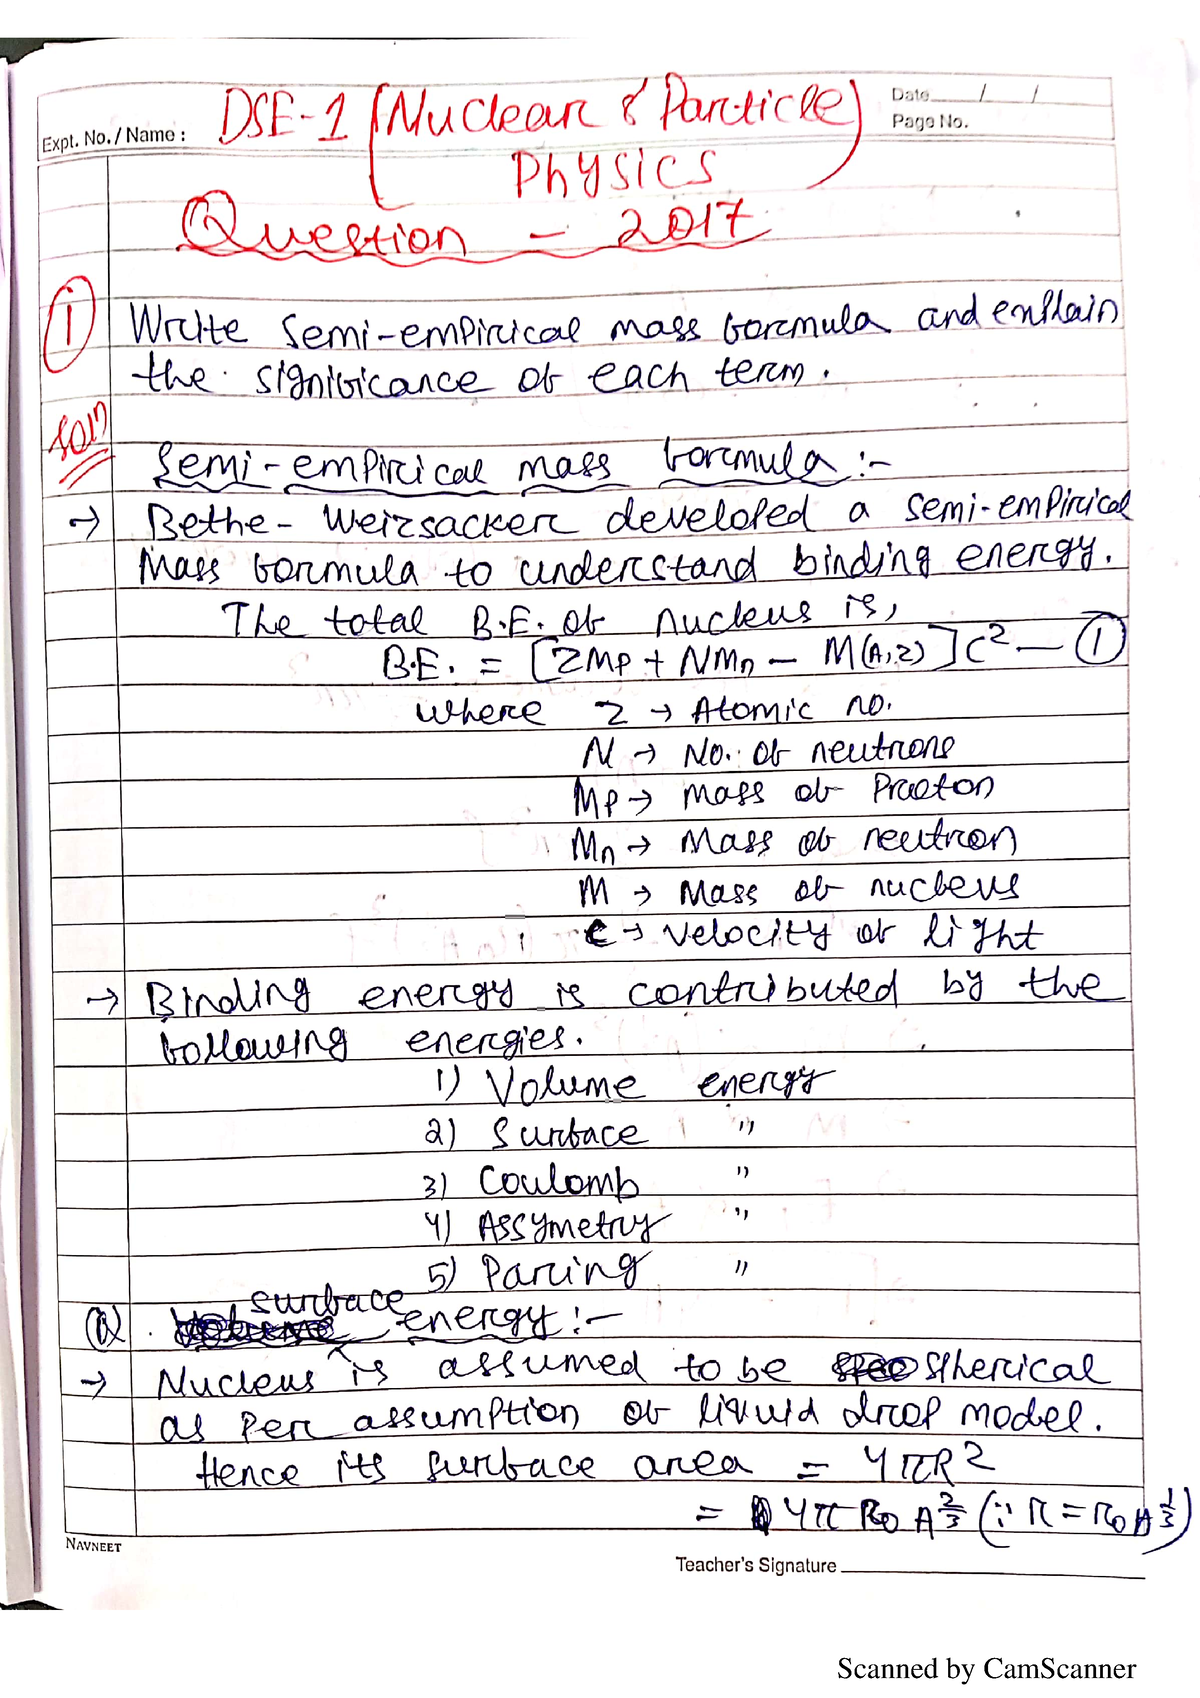 Expt. No. / Name :
DSE-1 (Nuclear & Particle)
Date / /
Page No.
Physics
Question - 2017
1
Write semi-empirical mass formula and explain
the significance of each term.
Soln
Semi-empirical mass formula :-
→ Bethe-Weizsacker developed a semi-empirical
Mass formula to understand binding energy.
The total B.E. of nucleus is,
B.E. = [ZMp + NMn - M(A,Z)]C² — 1
where Z → Atomic no.
N → No. of neutrons
Mp → Mass of Proton
Mn → Mass of neutron
M → Mass of nucleus
C → Velocity of light
→ Binding energy is contributed by the
following energies.
1) Volume energy
2) Surface "
3) Coulomb "
4) Assymetry "
5) Paring "
surface
energy :-
→ Nucleus is assumed to be spherical
as per assumption of liquid drop model.
Hence its surface area = 4πR²
= 4π R₀ A^2/3 (∵ R = R₀ A^1/3)
NAVNEET
Teacher's Signature
Scanned by CamScanner